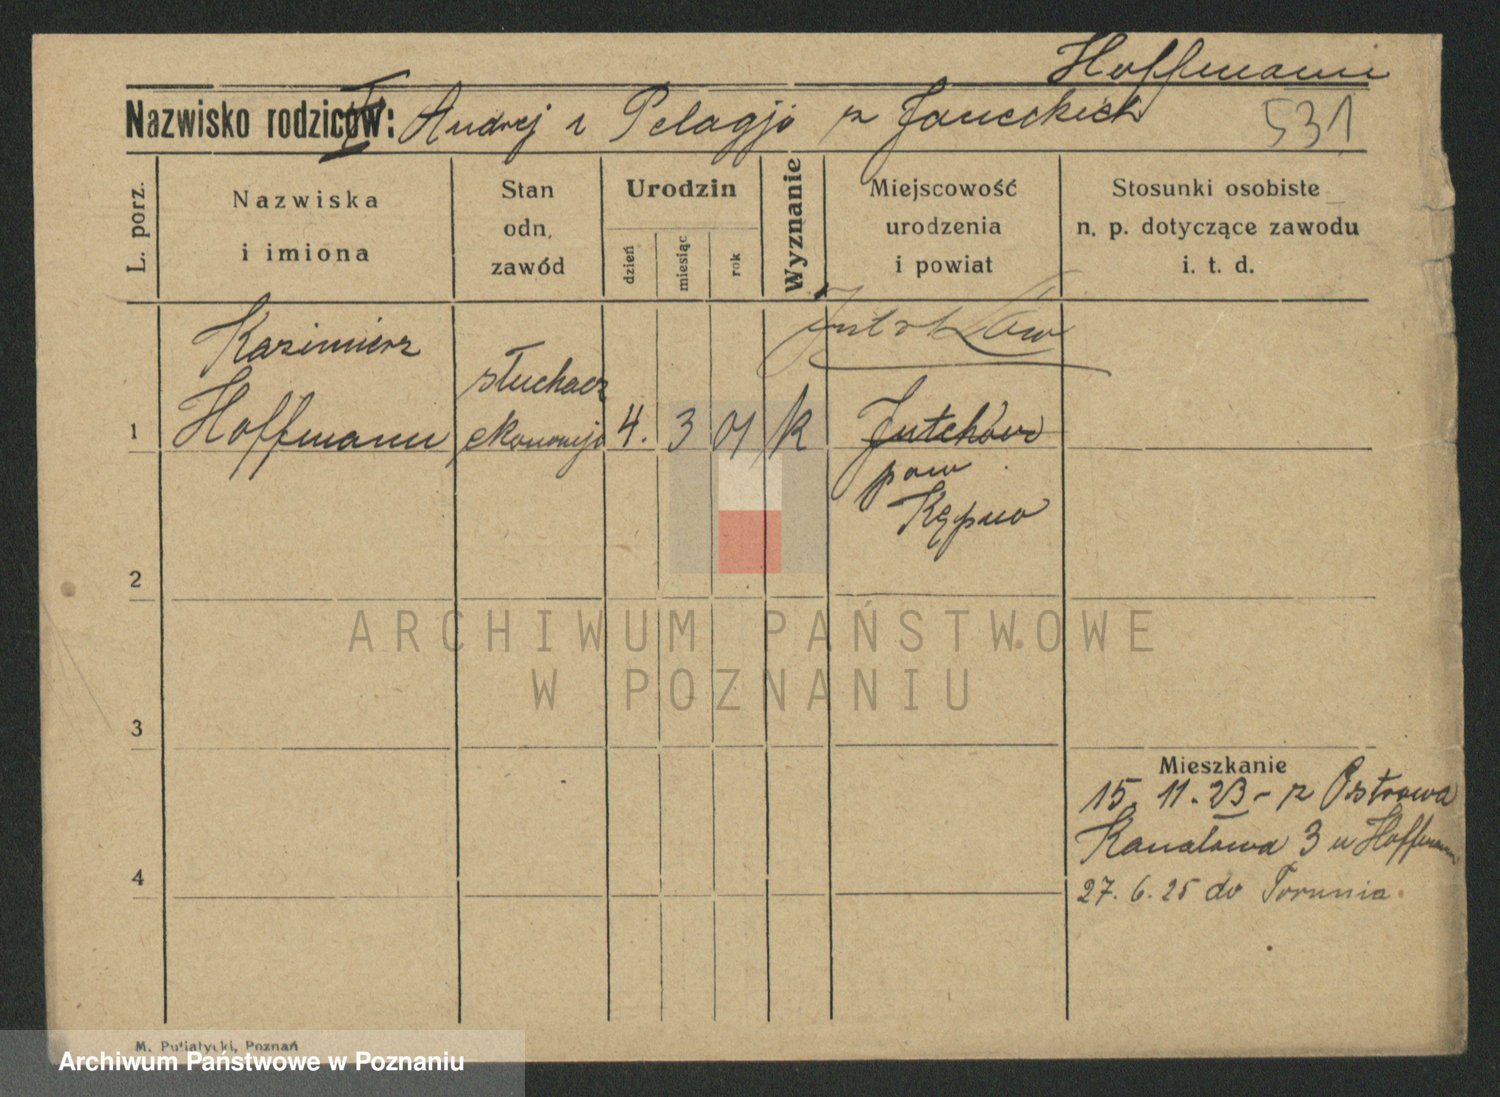 Hoffmann
Nazwisko rodziców: Andrej i Pelagja z Janeckich 531
L. porz.
Nazwiska
i imiona
Stan
odn.
zawód
Urodzin
dzień
miesiąc
rok
Wyznanie
Miejscowość
urodzenia
i powiat
Stosunki osobiste
n. p. dotyczące zawodu
i. t. d.
Kazimierz
słuchacz
1 Hoffmann ekonomji 4. 3 01 k
pow
Kępno
2
3
Mieszkanie
15. 11. 23 - z Ostrowa
Kanałowa 3 u Hoffmann
4
27. 6. 25 do Torunia.
M. Putiatycki, Poznań
ARCHIWUM PAŃSTWOWE
W POZNANIU
Archiwum Państwowe w Poznaniu